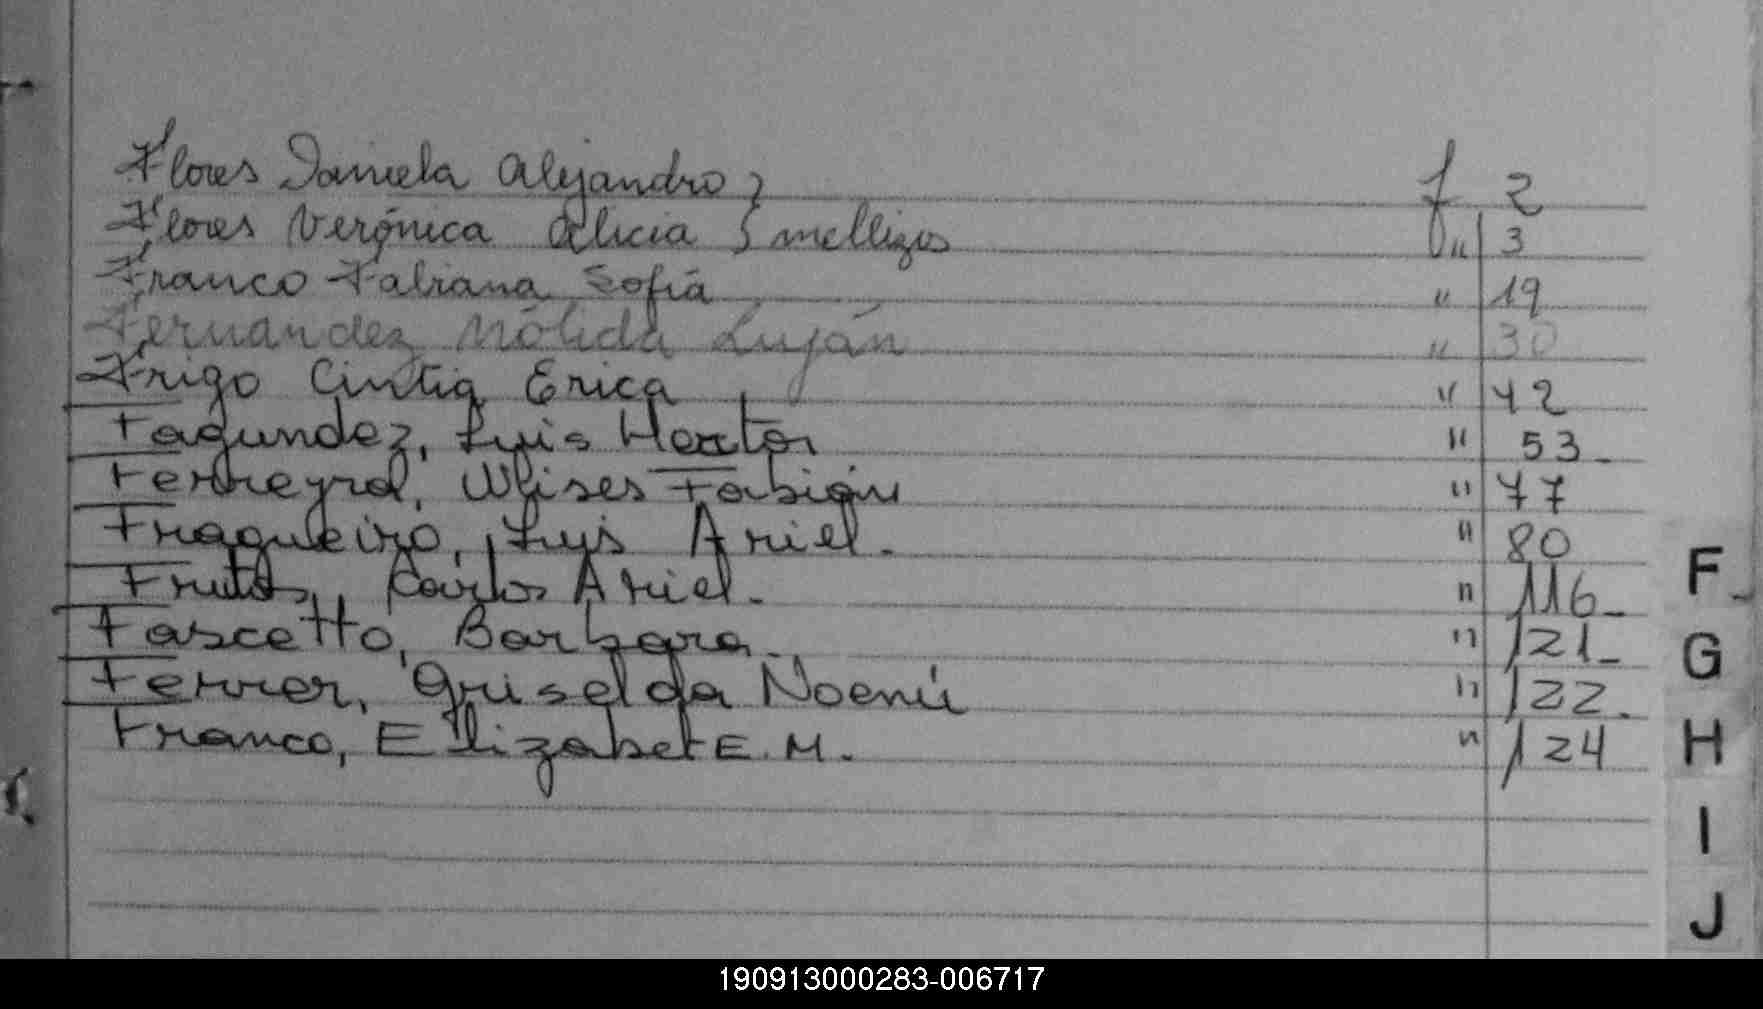 Flores Daniela Alejandro } f 2
Flores Verónica Alicia } mellizos " 3
Franco Fabiana Sofía " 19
Fernandez Nólida Luján " 30
Frigo Cintia Erica " 42
Fagundez, Luis Hector " 53
Ferreyra, Ulises Fabián " 77
Fragueiro, Luis Ariel. " 80
Frutos, Carlos Ariel. " 116
Fascetto, Barbara. " 121
Ferrer, Griselda Noemí " 122.
Franco, Elizabet E. M. " 124
F
G
H
I
J
190913000283-006717